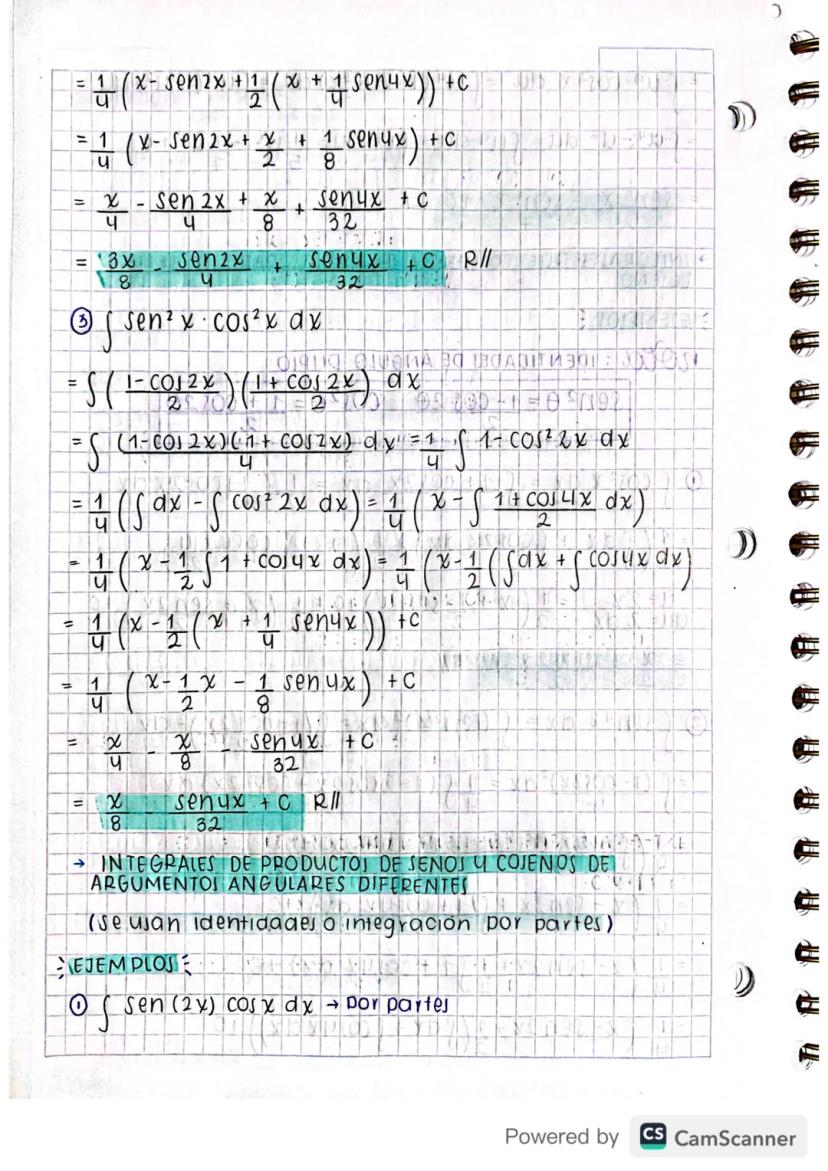 = 1/4 (x - sen2x + 1/2 (x + 1/4 sen4x)) + C
= 1/4 (x - sen2x + x/2 + 1/8 sen4x) + C
= x/4 - sen2x/4 + x/8 + sen4x/32 + C
= 3x/8 - sen2x/4 + sen4x/32 + C R//
③ ∫ sen² x · cos² x dx
= ∫ (1-cos2x/2) (1+cos2x/2) dx
= ∫ (1-cos2x)(1+cos2x)/4 dx = 1/4 ∫ 1-cos² 2x dx
= 1/4 (∫ dx - ∫ cos² 2x dx) = 1/4 (x - ∫ 1+cos4x/2 dx)
= 1/4 (x - 1/2 ∫ 1 + cos4x dx) = 1/4 (x - 1/2 (∫dx + ∫ cos4x dx)
= 1/4 (x - 1/2 (x + 1/4 sen4x)) + C
= 1/4 (x - 1/2 x - 1/8 sen4x) + C
= x/4 - x/8 - sen4x/32 + C
= x/8 - sen4x/32 + C R//
→ INTEGRALES DE PRODUCTOS DE SENOS Y COSENOS DE
ARGUMENTOS ANGULARES DIFERENTES
(se usan identidades o integración por partes)
EJEMPLOS
① ∫ sen (2x) cosx dx → por partes
Powered by CS CamScanner